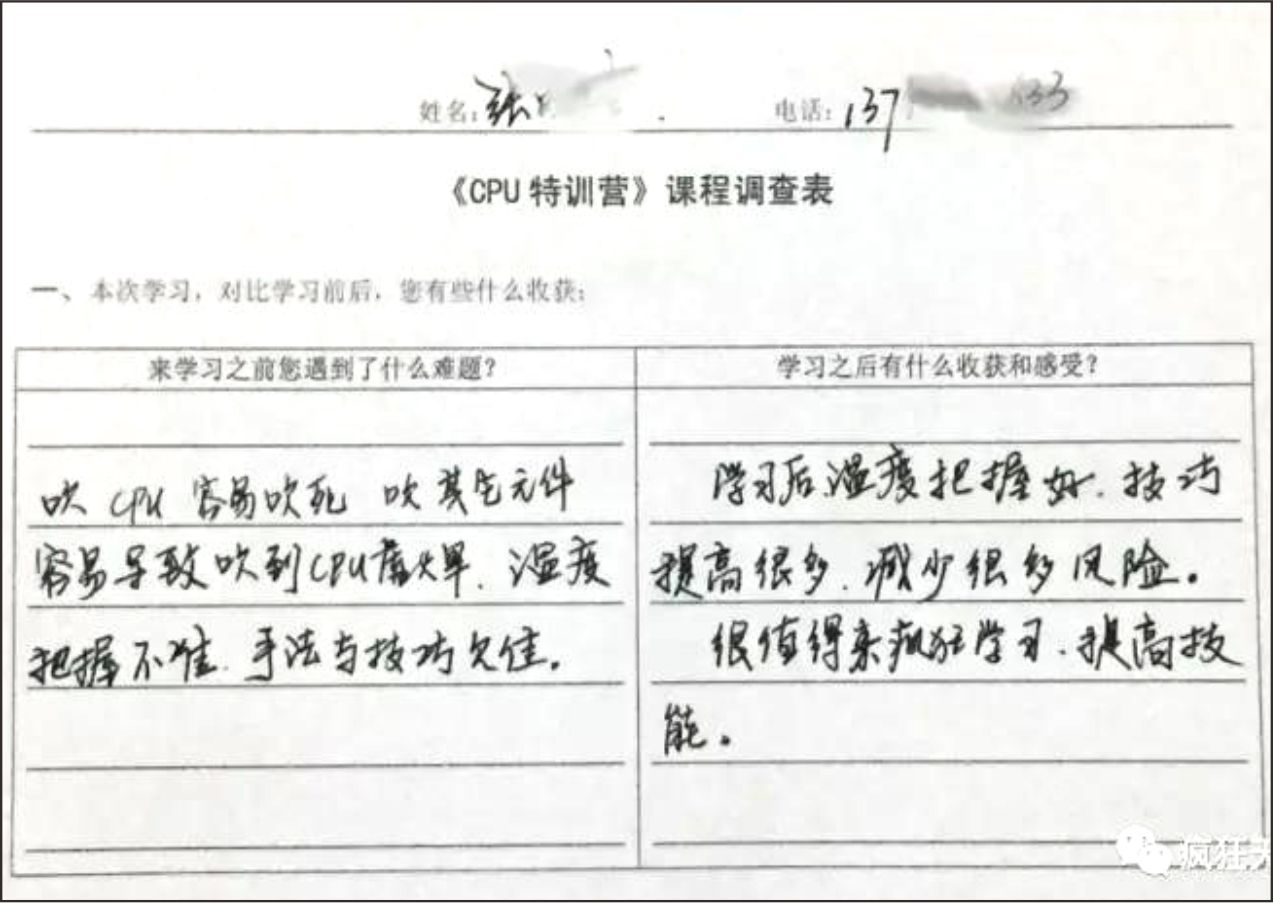 姓名：张
电话：137 33
《CPU 特训营》课程调查表
一、本次学习，对比学习前后，您有些什么收获：
来学习之前您遇到了什么难题？
吹 CPU 容易吹死 吹其它元件
容易导致吹到CPU 焊. 温度
把握不准. 手法与技巧欠佳。
学习之后有什么收获和感受？
学习后温度把握好. 技巧
提高很多. 减少很多风险。
很值得来疯狂学习. 提高技
能。
疯狂